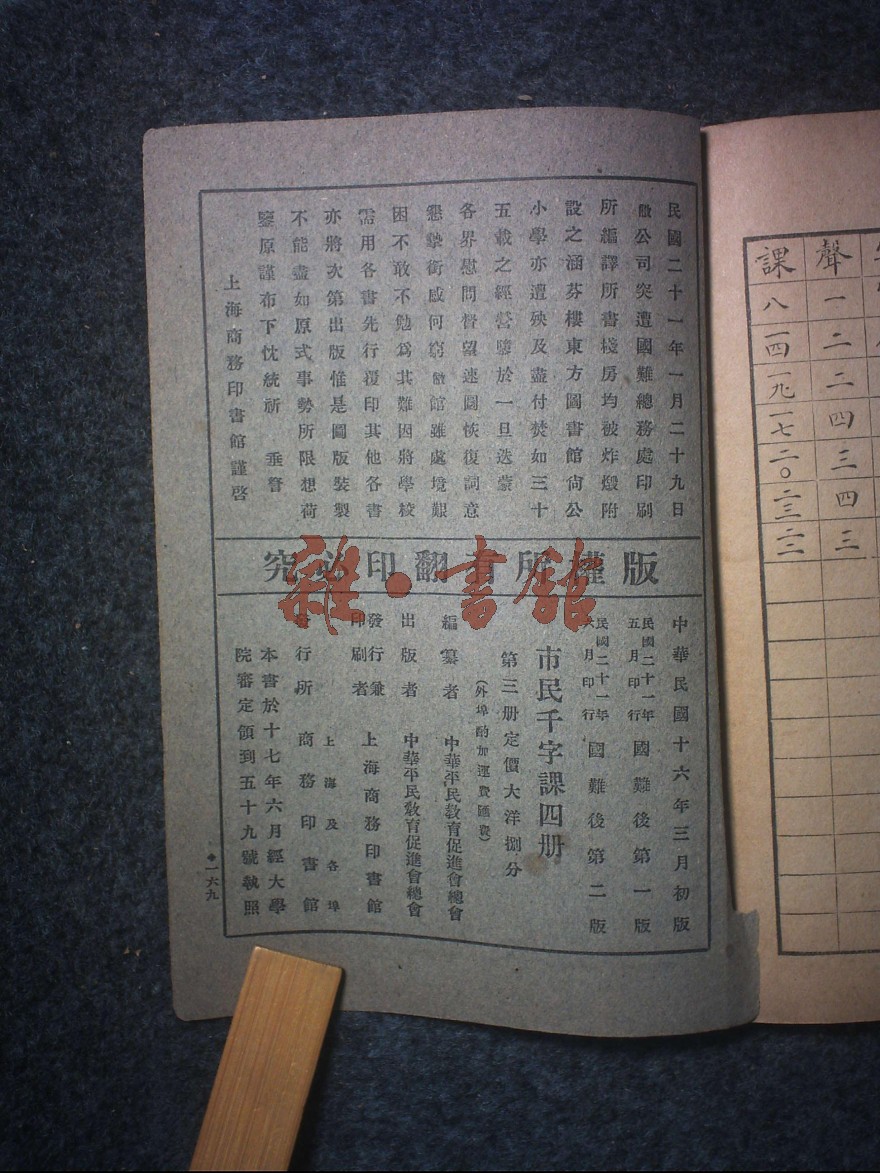 民國二十一年一月二十九日
敝公司突遭國難總務處印刷
所編譯所書棧房均被炸燬附
設之涵芬樓東方圖書館尚公
小學亦遭殃及盡付焚如三十
五載之經營隳於一旦迭蒙
各界慰問督望速圖恢復詞意
懇摯銜感何窮敝館雖處境艱
困不敢不勉爲其難因將學校
需用各書先行覆印其他各書
亦將次第出版惟是圖版裝製
不能盡如原式事勢所限想荷
鑒原謹布下忱統祈 垂詧
上海商務印書館謹啓
版權所有翻印必究
中華民國十六年三月初版
民國二十一年五月印行 國難後第一版
民國二十一年 月印行 國難後第二版
市民千字課四册
第三册定價大洋捌分
(外埠酌加運費匯費)
編纂者 中華平民教育促進會總會
出版者 中華平民教育促進會總會
發行兼印刷者 上海商務印書館
上海及各埠
發行所 商務印書館
本書於十七年六月經大學
院審定領到五十九號執照
一六九
雜·書館
聲 一 二 二 四 三 四 三
課 八 一四 一九 一七 二〇 二三 二二